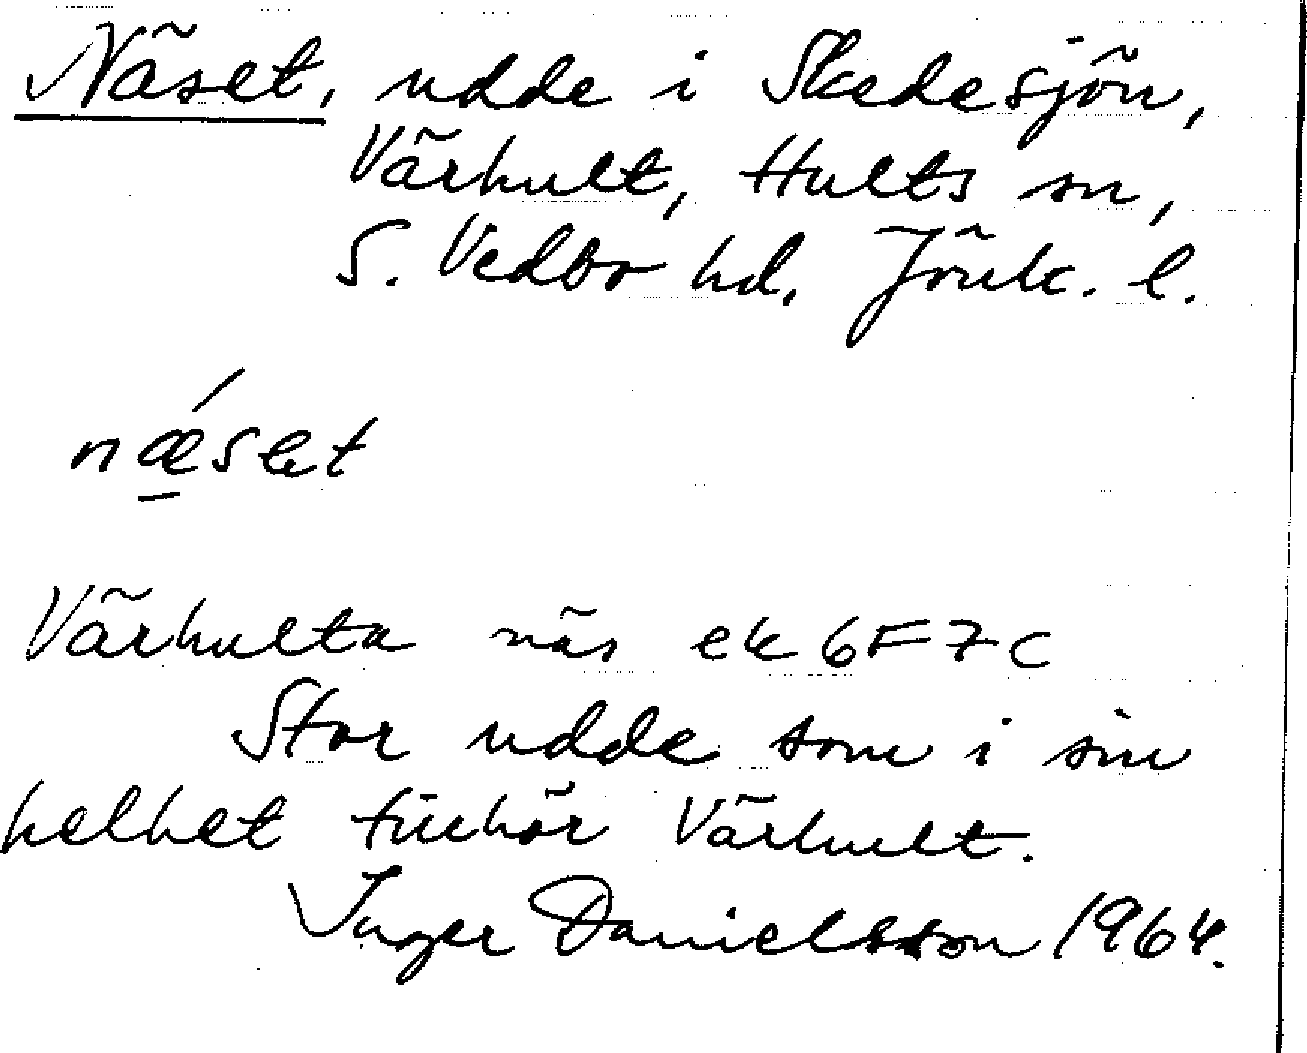 Näset, udde i Skedesjön,
Värhult, Hults sn,
S. Vedbo hd, Jönk. l.
nǽ̱set
Värhulta näs ek 6F7c
Stor udde som i sin
helhet tillhör Värhult.
Inger Danielsson 1964.